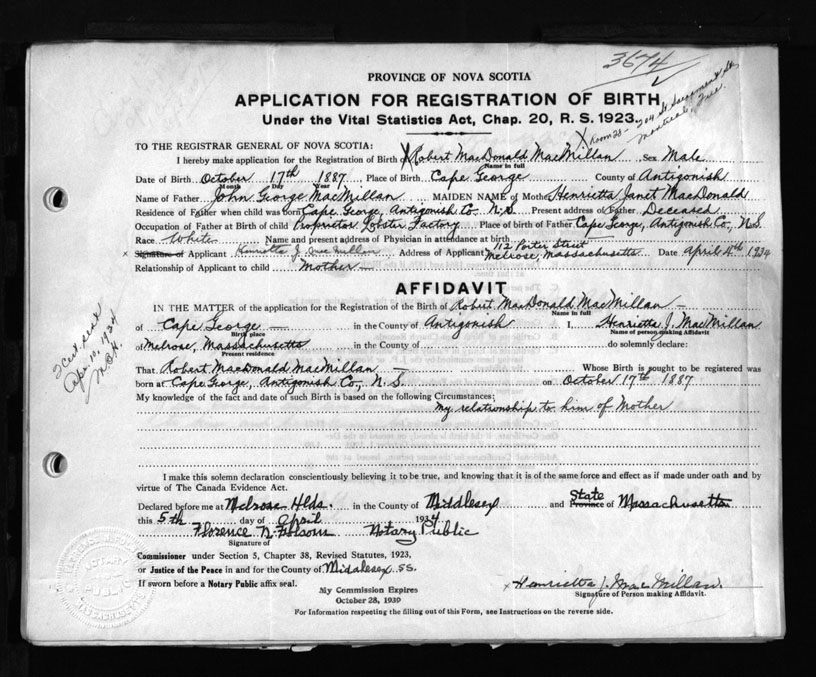 3674
PROVINCE OF NOVA SCOTIA
APPLICATION FOR REGISTRATION OF BIRTH
Under the Vital Statistics Act, Chap. 20, R. S. 1923.
X Room 28 - 204 St Sacrament St
Montreal, Que.
TO THE REGISTRAR GENERAL OF NOVA SCOTIA:
I hereby make application for the Registration of Birth of Robert MacDonald MacMillan Sex Male
Name in full
Date of Birth October 17th 1887 Place of Birth Cape George County of Antigonish
Month Day Year
Name of Father John George MacMillan MAIDEN NAME of Mother Henrietta Janet MacDonald
Residence of Father when child was born Cape George, Antigonish Co. N.S. Present address of Father Deceased
Occupation of Father at Birth of child Proprietor Lobster Factory Place of birth of Father Cape George, Antigonish Co., N.S.
Race White Name and present address of Physician in attendance at birth —
112 Porter Street
x Signature of Applicant Henrietta J. MacMillan Address of Applicant Melrose, Massachusetts Date April 4th 1934
Relationship of Applicant to child Mother —
AFFIDAVIT
IN THE MATTER of the application for the Registration of the Birth of Robert MacDonald MacMillan —
Name in full
of Cape George — in the County of Antigonish I, Henrietta J. MacMillan
Birth place Name of person making Affidavit
of Melrose, Massachusetts in the County of do solemnly declare:
Present residence
That Robert MacDonald MacMillan — Whose Birth is sought to be registered was
born at Cape George, Antigonish Co., N.S. on October 17th 1887
My knowledge of the fact and date of such Birth is based on the following Circumstances:
My relationship to him of Mother
2 Cert. sent
Apr. 10, 1934
I make this solemn declaration conscientiously believing it to be true, and knowing that it is of the same force and effect as if made under oath and by
virtue of The Canada Evidence Act.
Declared before me at Melrose Hlds. in the County of Middlesex and State Province of Massachusetts
this 5th day of April 1934
Florence N. Folsom Notary Public
Signature of
Commissioner under Section 5, Chapter 38, Revised Statutes, 1923,
or Justice of the Peace in and for the County of Middlesex SS.
If sworn before a Notary Public affix seal.
My Commission Expires
October 28, 1939
x Henrietta J. MacMillan.
Signature of Person making Affidavit.
For Information respecting the filling out of this Form, see Instructions on the reverse side.